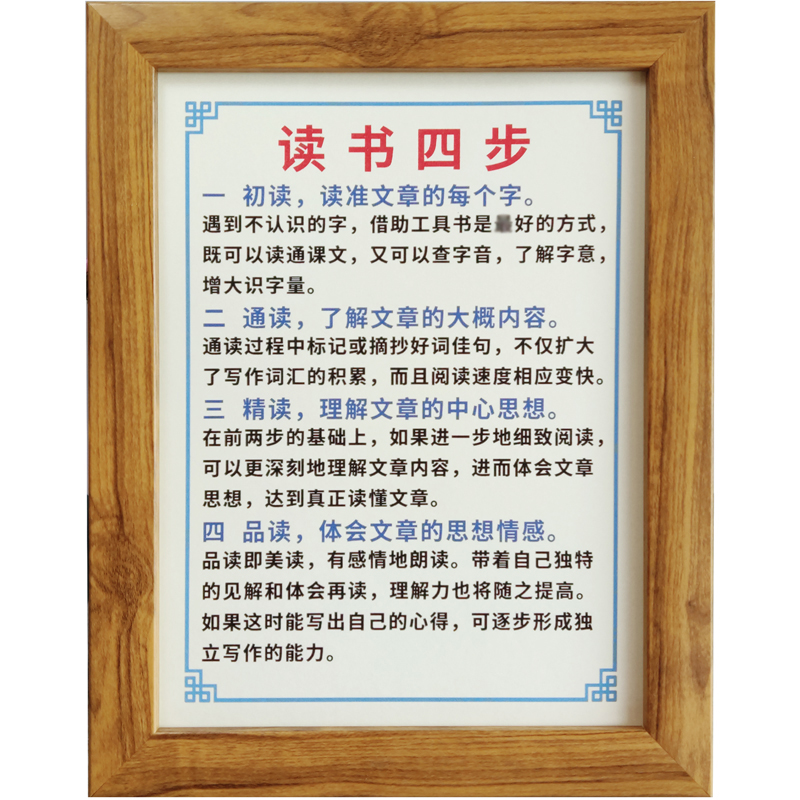 读书四步
一 初读，读准文章的每个字。
遇到不认识的字，借助工具书是好的方式，
既可以读通课文，又可以查字音，了解字意，
增大识字量。
二 通读，了解文章的大概内容。
通读过程中标记或摘抄好词佳句，不仅扩大
了写作词汇的积累，而且阅读速度相应变快。
三 精读，理解文章的中心思想。
在前两步的基础上，如果进一步地细致阅读，
可以更深刻地理解文章内容，进而体会文章
思想，达到真正读懂文章。
四 品读，体会文章的思想情感。
品读即美读，有感情地朗读。带着自己独特
的见解和体会再读，理解力也将随之提高。
如果这时能写出自己的心得，可逐步形成独
立写作的能力。